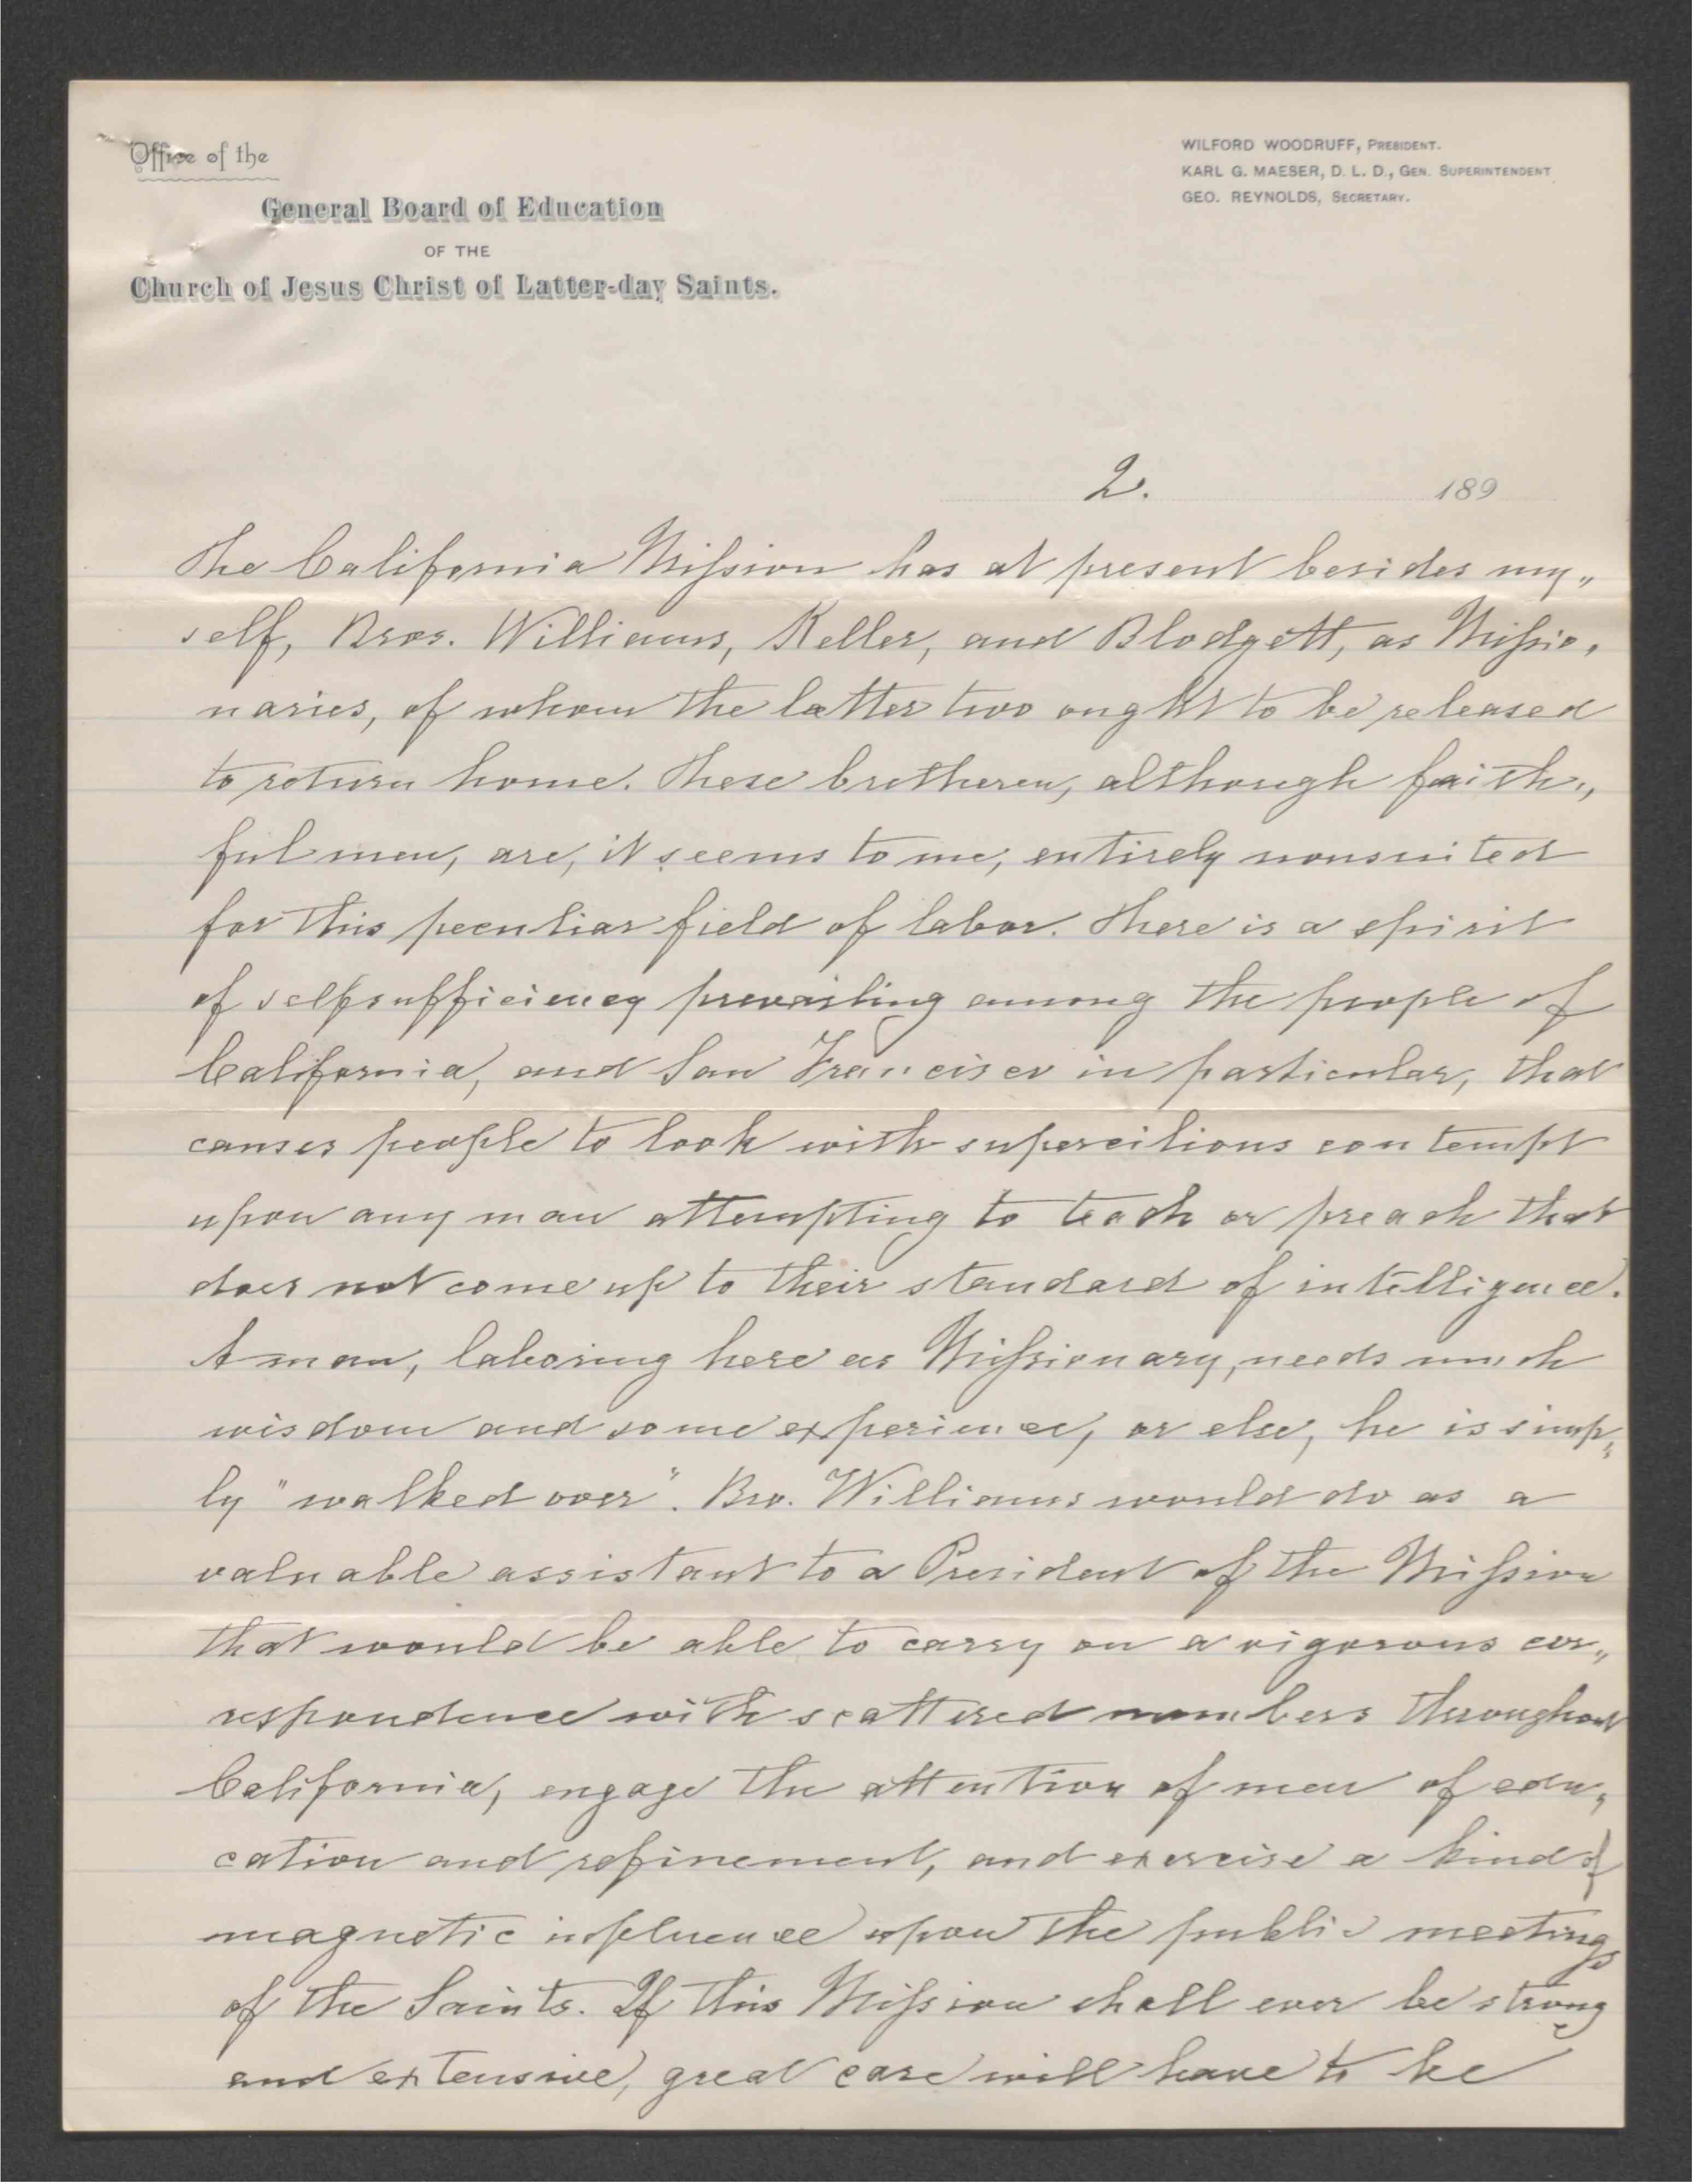 Office of the
General Board of Education
OF THE
Church of Jesus Christ of Latter-day Saints.
WILFORD WOODRUFF, PRESIDENT.
KARL G. MAESER, D. L. D., GEN. SUPERINTENDENT
GEO. REYNOLDS, SECRETARY.
2. 189
The California Mission has at present besides my„
self, Bros. Williams, Keller, and Blodgett, as Missio„
naries, of whom the latter two ought to be released
to return home. These bretheren, although faith„
ful men, are, it seems to me, entirely nonsuited
for this peculiar field of labor. There is a spirit
of selfsufficiency prevailing among the people of
California, and San Francisco in particular, that
causes people to look with supercilious contempt
upon any man attempting to teach or preach that
does not come up to their standard of intelligence.
A man, laboring here as Missionary, needs much
wisdom and some experience, or else, he is simp„
ly "walked over". Bro. Williams would do as a
valuable assistant to a President of the Mission
that would be able to carry on a vigorous cor„
respondence with scattered members throughout
California, engage the attention of men of edu„
cation and refinement, and exercise a kind of
magnetic influence upon the public meetings
of the Saints. If this Mission shall ever be strong
and extensive, great care will have to be